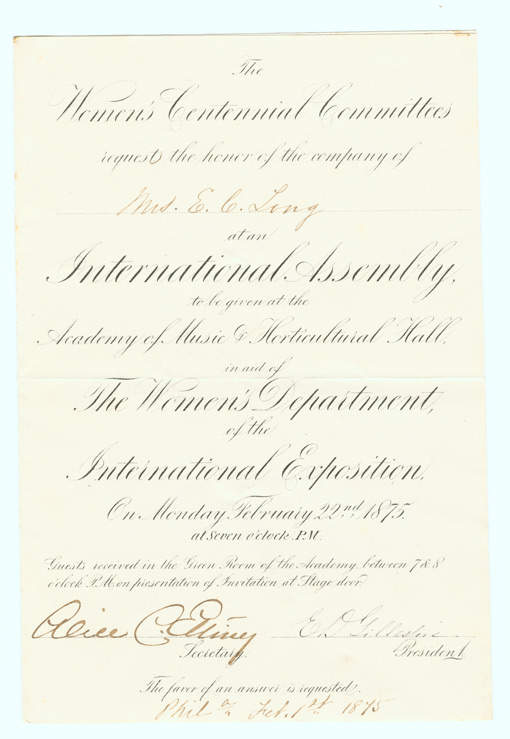 The
Women's Centennial Committees
request the honor of the company of
Mrs. E. C. Long
at an
International Assembly,
to be given at the
Academy of Music & Horticultural Hall,
in aid of
The Women's Department,
of the
International Exposition,
On Monday February 22nd 1875.
at Seven o'clock P.M.
Guests received in the Green Room of the Academy, between 7 & 8
o'clock P.M. on presentation of Invitation at Stage door.
Alice C. E. D. Gillespie
Secretary. President.
The favor of an answer is requested.
Phil a Feb. 1st 1875